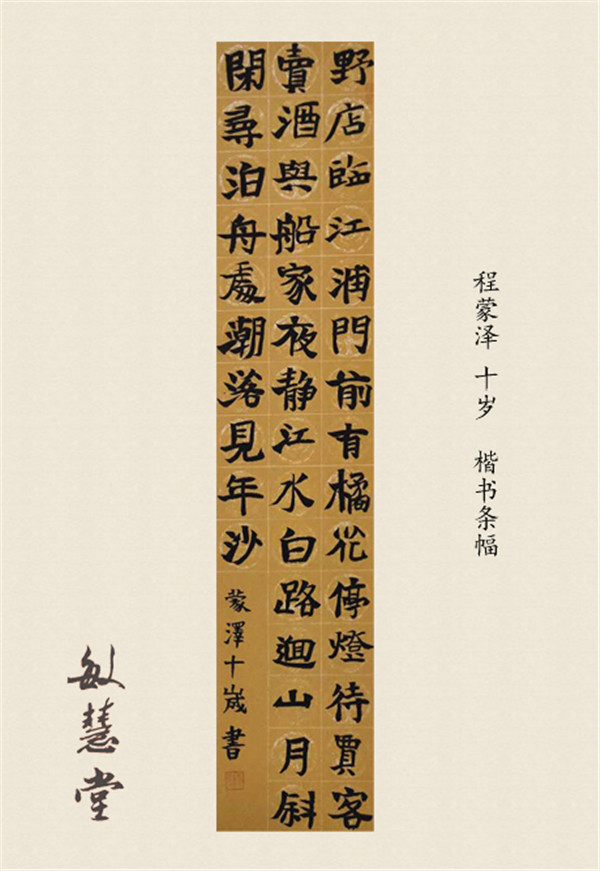 野店臨江浦門前有橘花停燈待賈客
賣酒與船家夜静江水白路迴山月斜
閑尋泊舟處潮落見年沙
蒙澤十歲書
程蒙泽 十岁 楷书条幅
敏慧堂